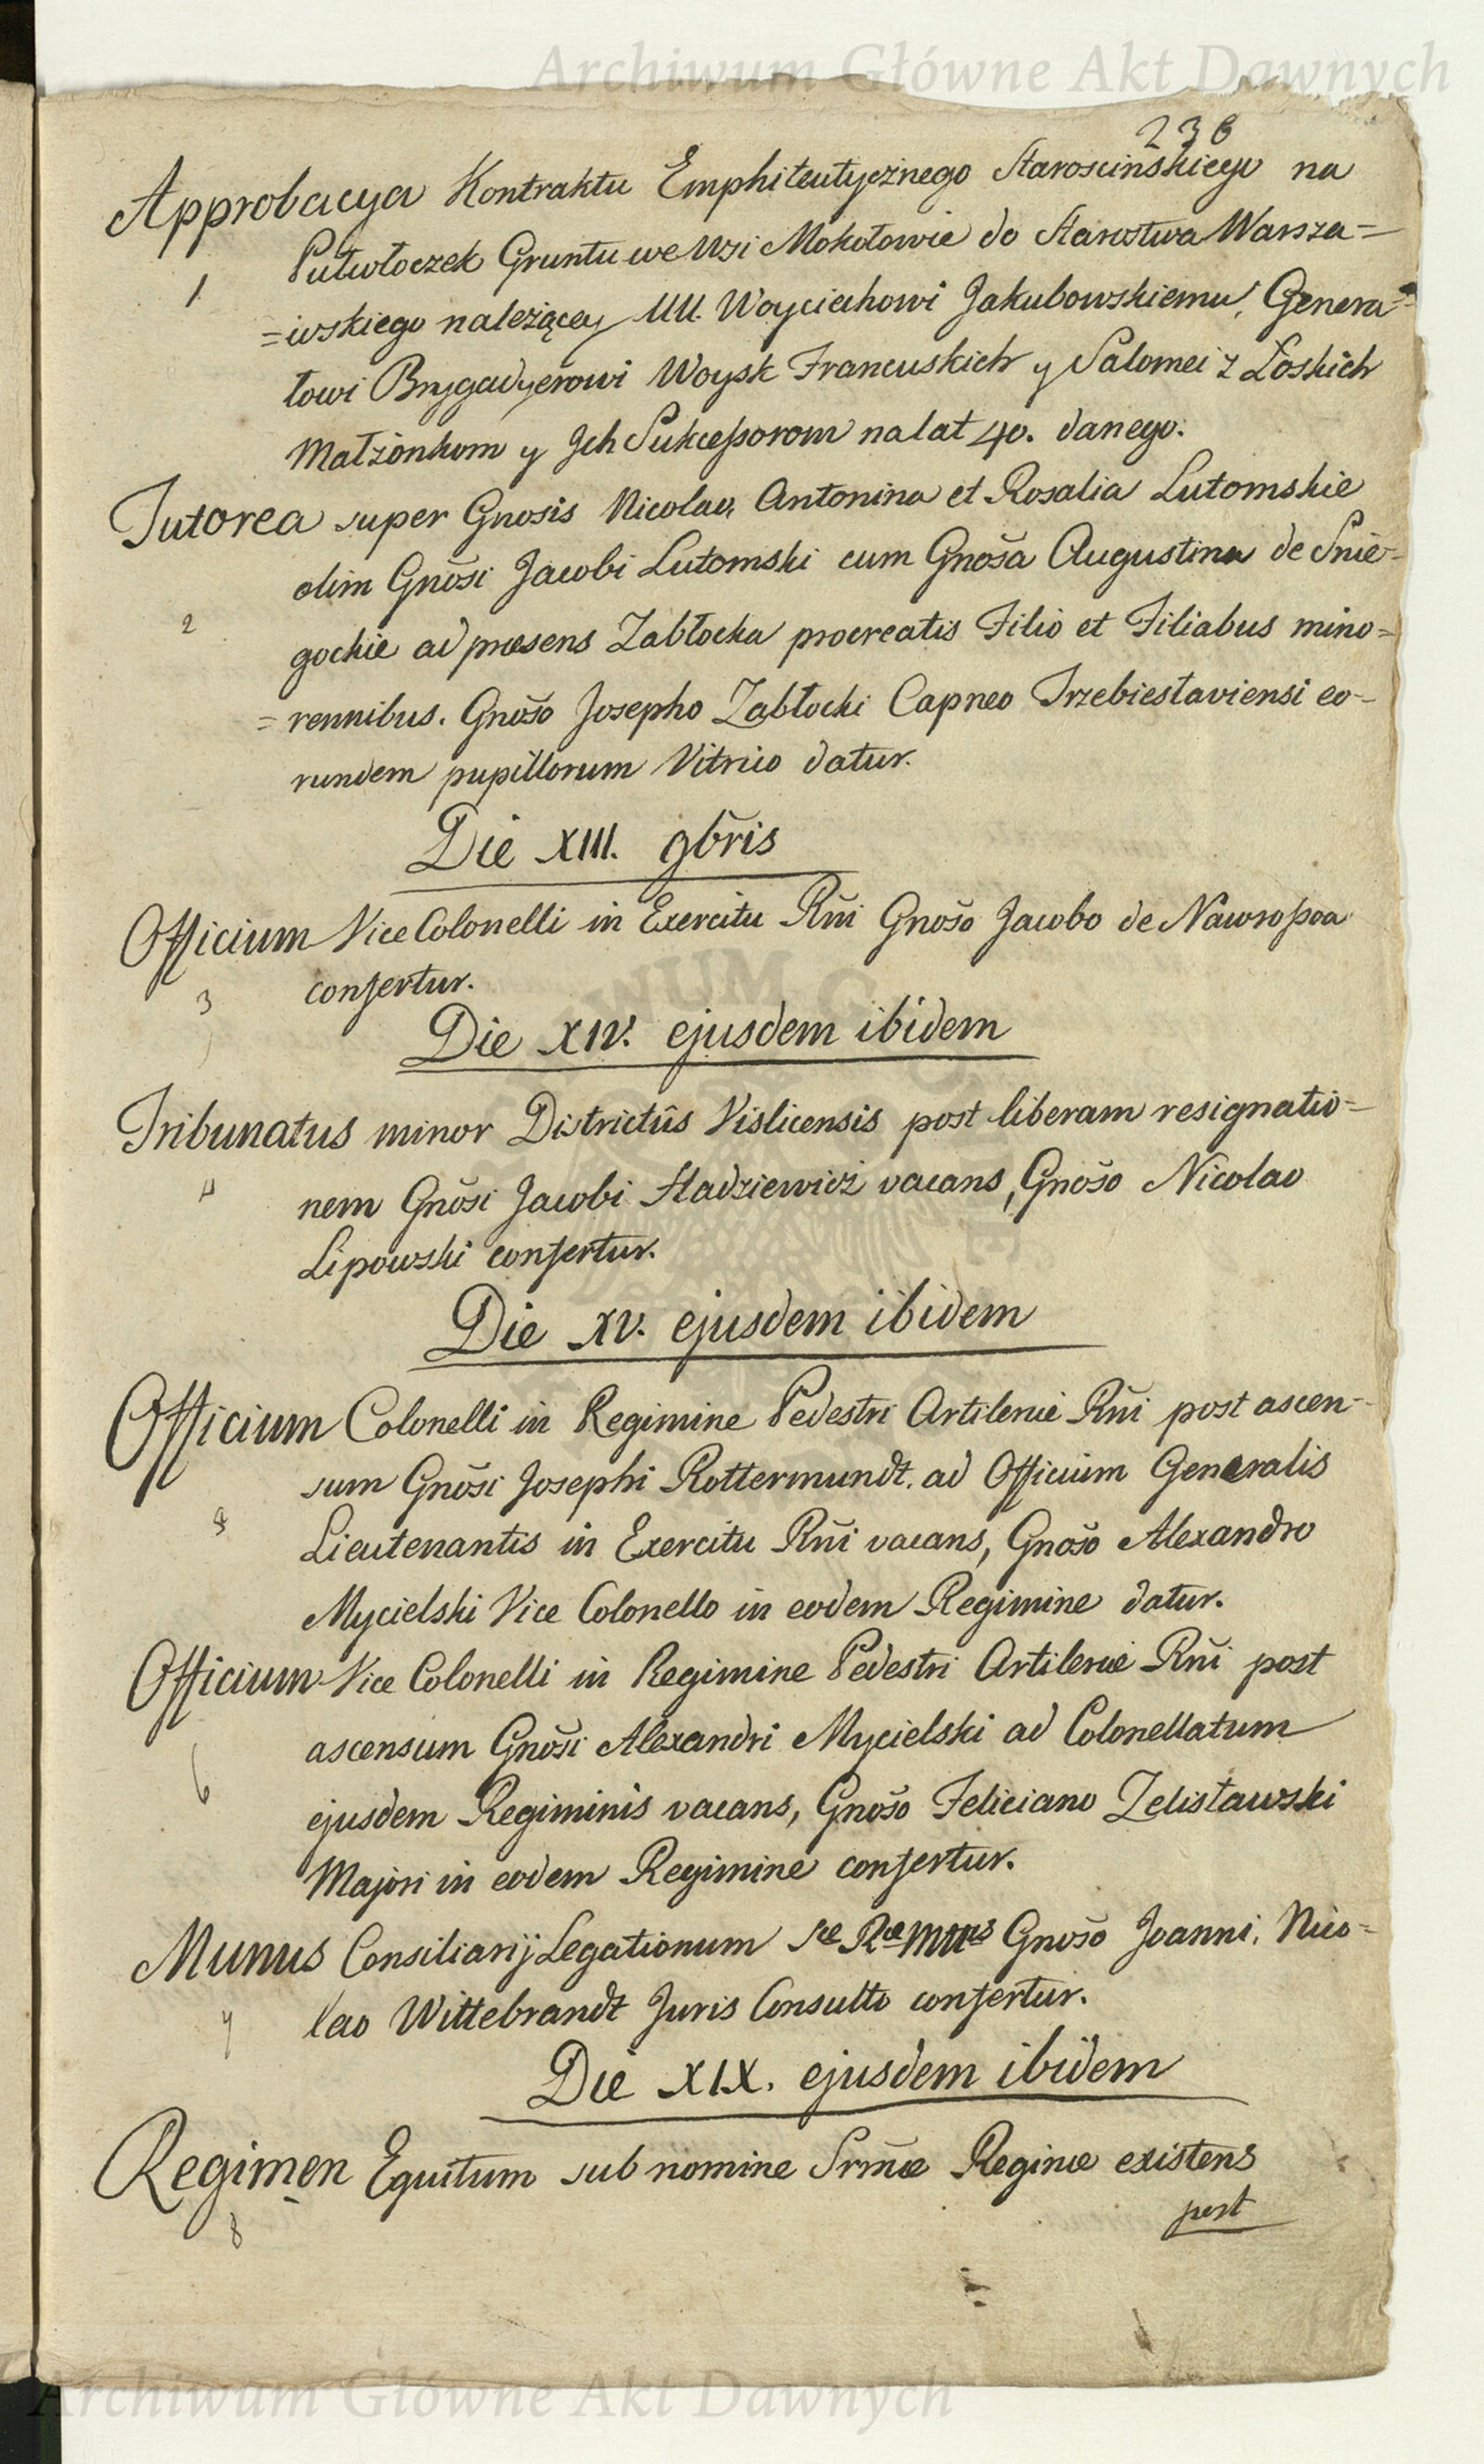 Archiwum Główne Akt Dawnych
236
Approbacya Kontraktu Emphiteutycznego Starościńskiego na
Pułwłoczek Gruntu we Wsi Mokotowie do Starostwa Warsza=
1
=wskiego należącey UU. Woyciechowi Jakubowskiemu, Genera=
łowi Brygadyerowi Woysk Francuskich y Salomei z Łoskich
Małżonkom y Jch Sukcessorom na lat 40. danego.
Tutorea super Gnosis Nicolao, Antonina et Rosalia Lutomskie
olim Gnõsi Jacobi Lutomski cum Gnõsa Augustina de Snie-
2
gockie ad præsens Zabłocka procreatis Filio et Filiabus mino=
=rennibus. Gnõso Josepho Zabłocki Capneo Trzebiesłaviensi eo-
rundem pupillorum Vitrico datur.
Die XIII. 9bris
Officium Vice Colonelli in Exercitu Rñi Gnõso Jacobo de Nawrossoa
3
confertur.
Die XIV. ejusdem ibidem
Tribunatus minor Districtûs Vislicensis post liberam resignatio=
4
nem Gnõsi Jacobi Hadziewicz vacans, Gnõso Nicolao
Lipowski confertur.
Die XV. ejusdem ibidem
Officium Colonelli in Regimine Pedestri Artileriæ Rñi post ascen-
sum Gnõsi Josephi Rottermundt. ad Officium Generalis
5
Lieutenantis in Exercitu Rñi vacans, Gnõso Alexandro
Mycielski Vice Colonello in eodem Regimine datur.
Officium Vice Colonelli in Regimine Pedestri Artileriæ Rñi post
ascensum Gnõsi Alexandri Mycielski ad Colonellatum
6
ejusdem Regiminis vacans, Gnõso Feliciano Zelisławski
Majori in eodem Regimine confertur.
Munus Consiliarij Legationum Sæ Ræ Mttis Gnõso Joanni, Nico=
7
lao Wittebrandt Juris Consulto confertur.
Die XIX. ejusdem ibidem
Regimen Equitum sub nomine Srm̃æ Reginæ existens
8
post
Archiwum Główne Akt Dawnych